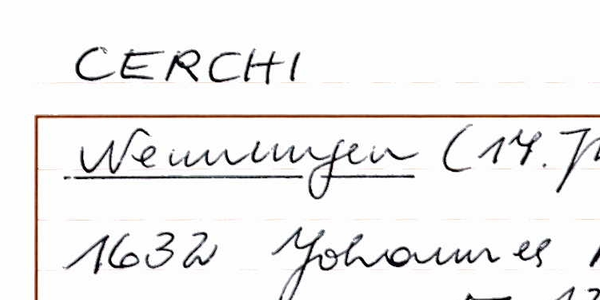 CERCHI
Wennungen (14. J
1632 Johannes